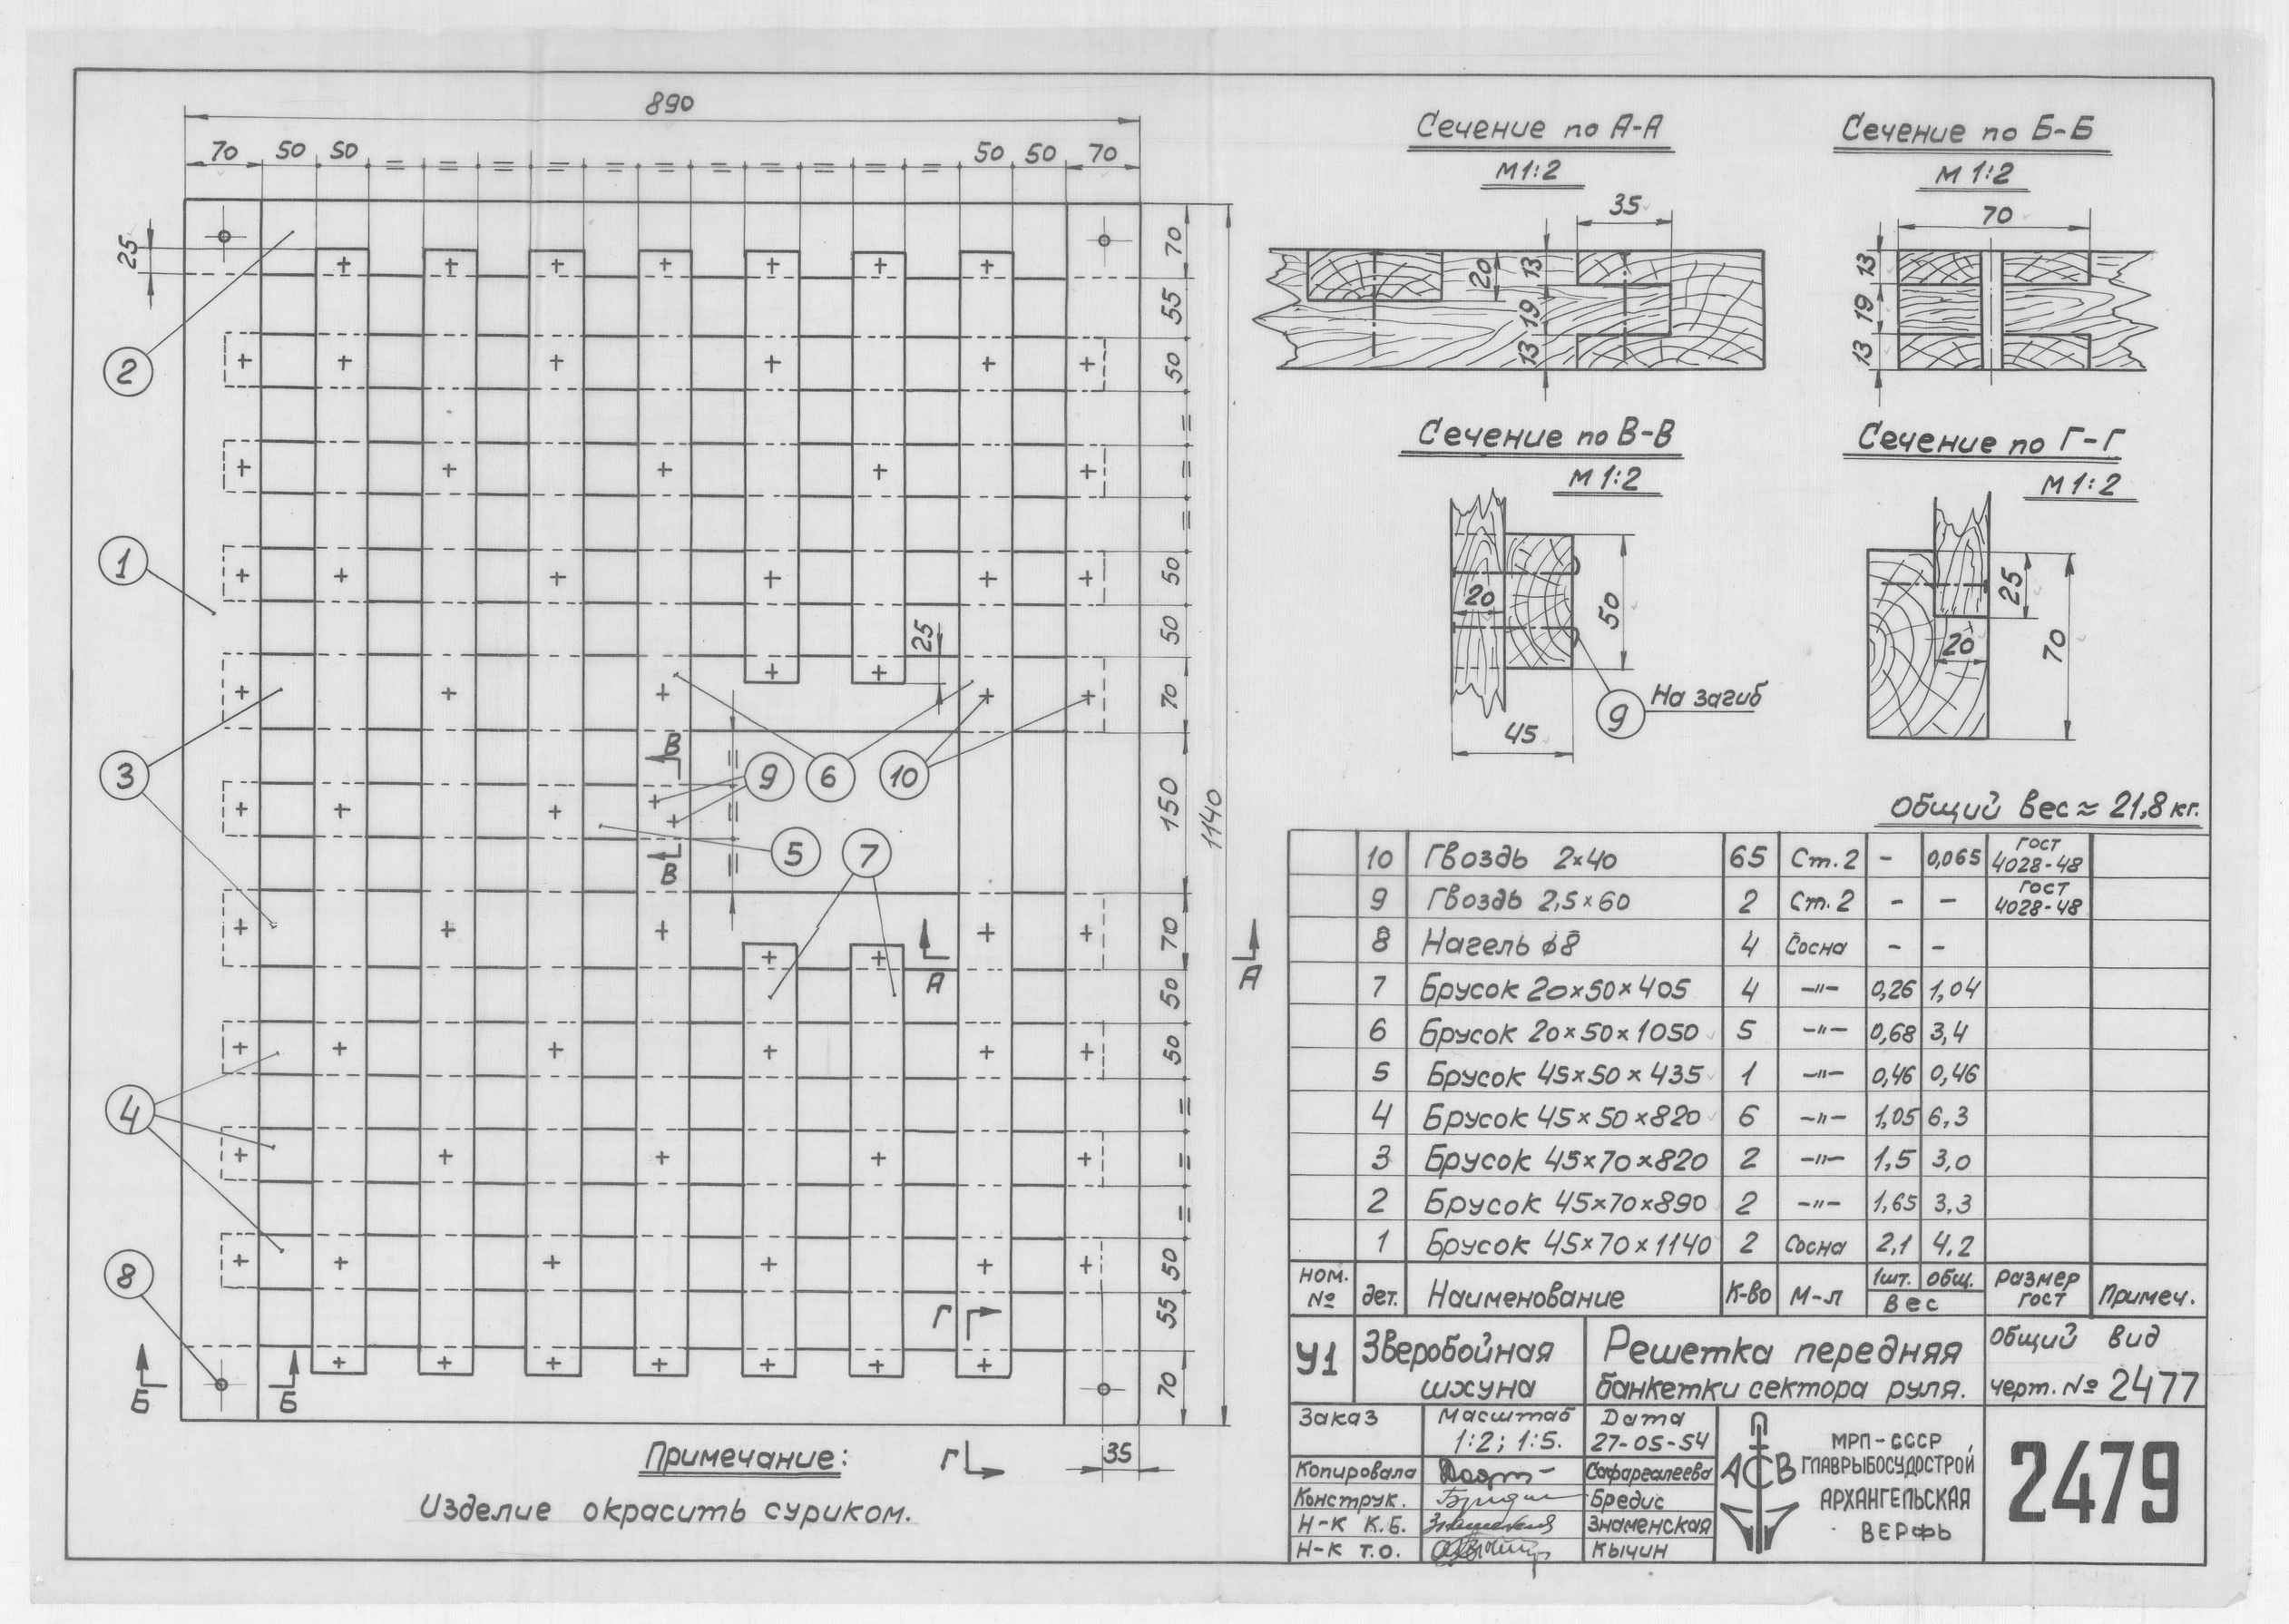 890
70 50 50 = = = = = = = = = = = 50 50 70
25
2
1
3
4
8
70
55
50
=
=
=
50
50
70
150
1140
70
50
50
=
=
=
50
55
70
25
В
9 6 10
5 7
В
А А
Г
Б Б
Г
35
Примечание:
Изделие окрасить суриком.
Сечение по А-А
М1:2
35
20 13
19
13
Сечение по Б-Б
М 1:2
70
13
19
13
Сечение по В-В
М 1:2
20
50
45
9 На загиб
Сечение по Г-Г
М 1:2
25
20
70
Общий вес ≈ 21,8 кг.
10 Гвоздь 2×40 65 Ст.2 - 0,065 ГОСТ 4028-48
9 Гвоздь 2,5×60 2 Ст.2 - - ГОСТ 4028-48
8 Нагель ϕ8 4 Сосна - -
7 Брусок 20×50×405 4 -"- 0,26 1,04
6 Брусок 20×50×1050 5 -"- 0,68 3,4
5 Брусок 45×50×435 1 -"- 0,46 0,46
4 Брусок 45×50×820 6 -"- 1,05 6,3
3 Брусок 45×70×820 2 -"- 1,5 3,0
2 Брусок 45×70×890 2 -"- 1,65 3,3
1 Брусок 45×70×1140 2 Сосна 2,1 4,2
Ном. № дет. Наименование К-во М-л 1шт. Общ. Вес Размер ГОСТ Примеч.
У1 Зверобойная шхуна
Решетка передняя
банкетки сектора руля.
Общий вид
черт. № 2477
Заказ
Масштаб
1:2; 1:5.
Дата
27-05-54
Копировала Сафаргалеева
Конструк. Бредис
Н-к К.Б. Знаменская
Н-к Т.О. Кычин
АСВ
МРП-СССР
ГЛАВРЫБОСУДОСТРОЙ
АРХАНГЕЛЬСКАЯ
ВЕРФЬ
2479